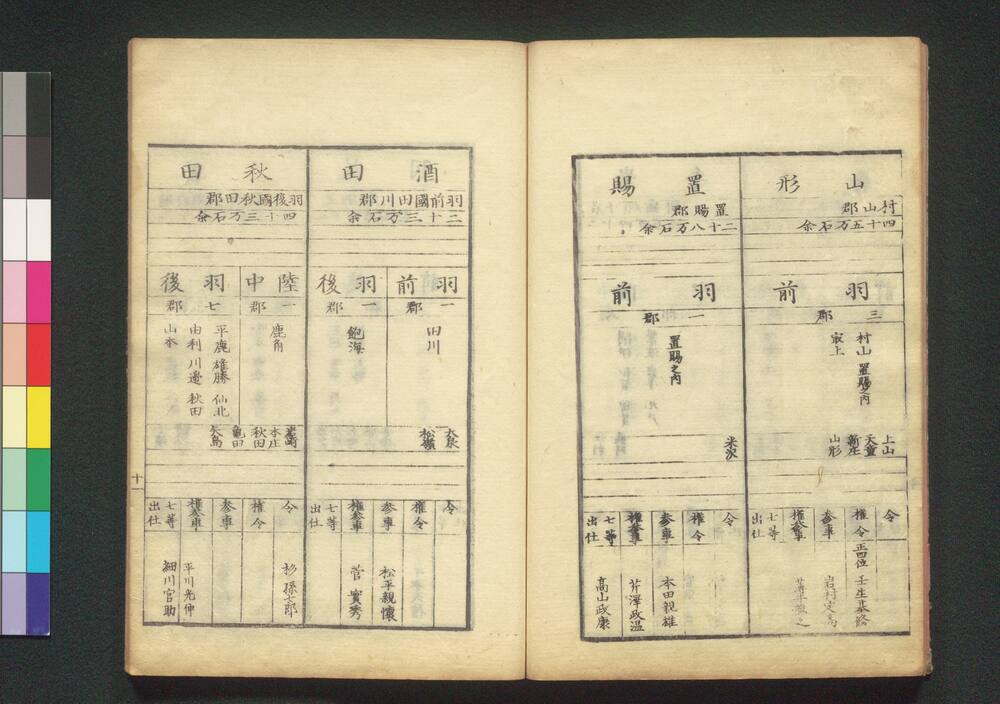 山形
村山郡
四十五万石余
羽前
三郡
村山 置賜之内
最上
上山
天童
新庄
山形
令
権令 正四位 壬生基修
参事
権参事
七等出仕
置賜
置賜郡
二十八万石余
羽前
一郡
置賜之内
米沢
令
権令
参事 本田親雄
権参事 芹澤政温
七等出仕 高山政康
酒田
羽前國田川郡
二十三万石余
羽前
一郡
田川
羽後
一郡
飽海
大泉
松嶺
令
権令
参事 松平親懐
権参事 菅實秀
七等出仕
秋田
羽後國秋田郡
四十三万石余
陸中
一郡
鹿角
羽後
七郡
平鹿 雄勝 仙北
由利 川邊 秋田
山本
岩崎
本庄
秋田
亀田
矢島
令 杉孫七郎
権令
参事
権参事 平川光伸
七等出仕 細川官助
十一